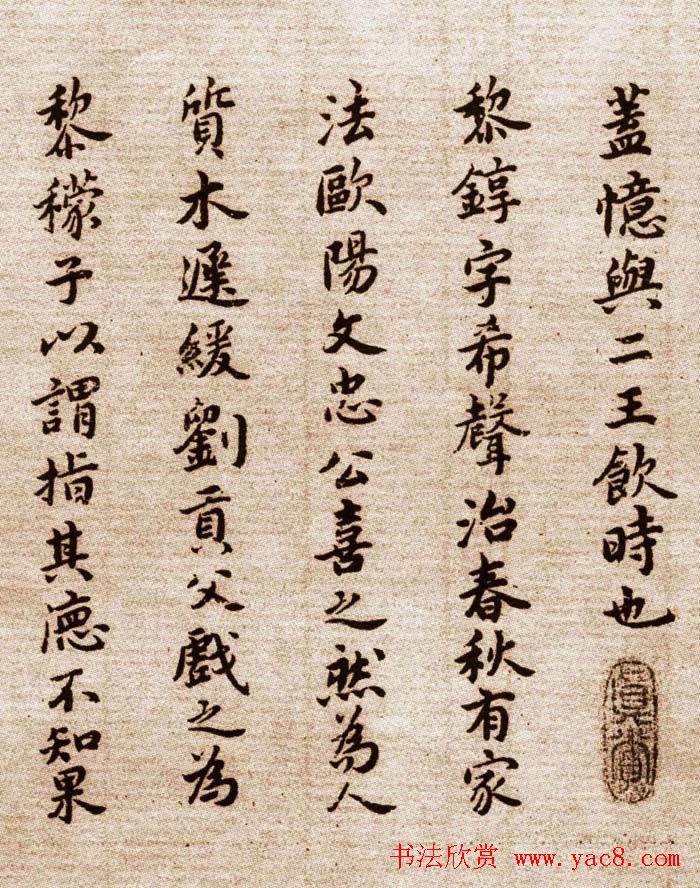 蓋憶與二王飲時也
黎錞字希聲治春秋有家
法歐陽文忠公喜之然為人
質木遲緩劉貢父戲之為
黎檬子以謂指其德不知果
书法欣赏 www.yac8.com